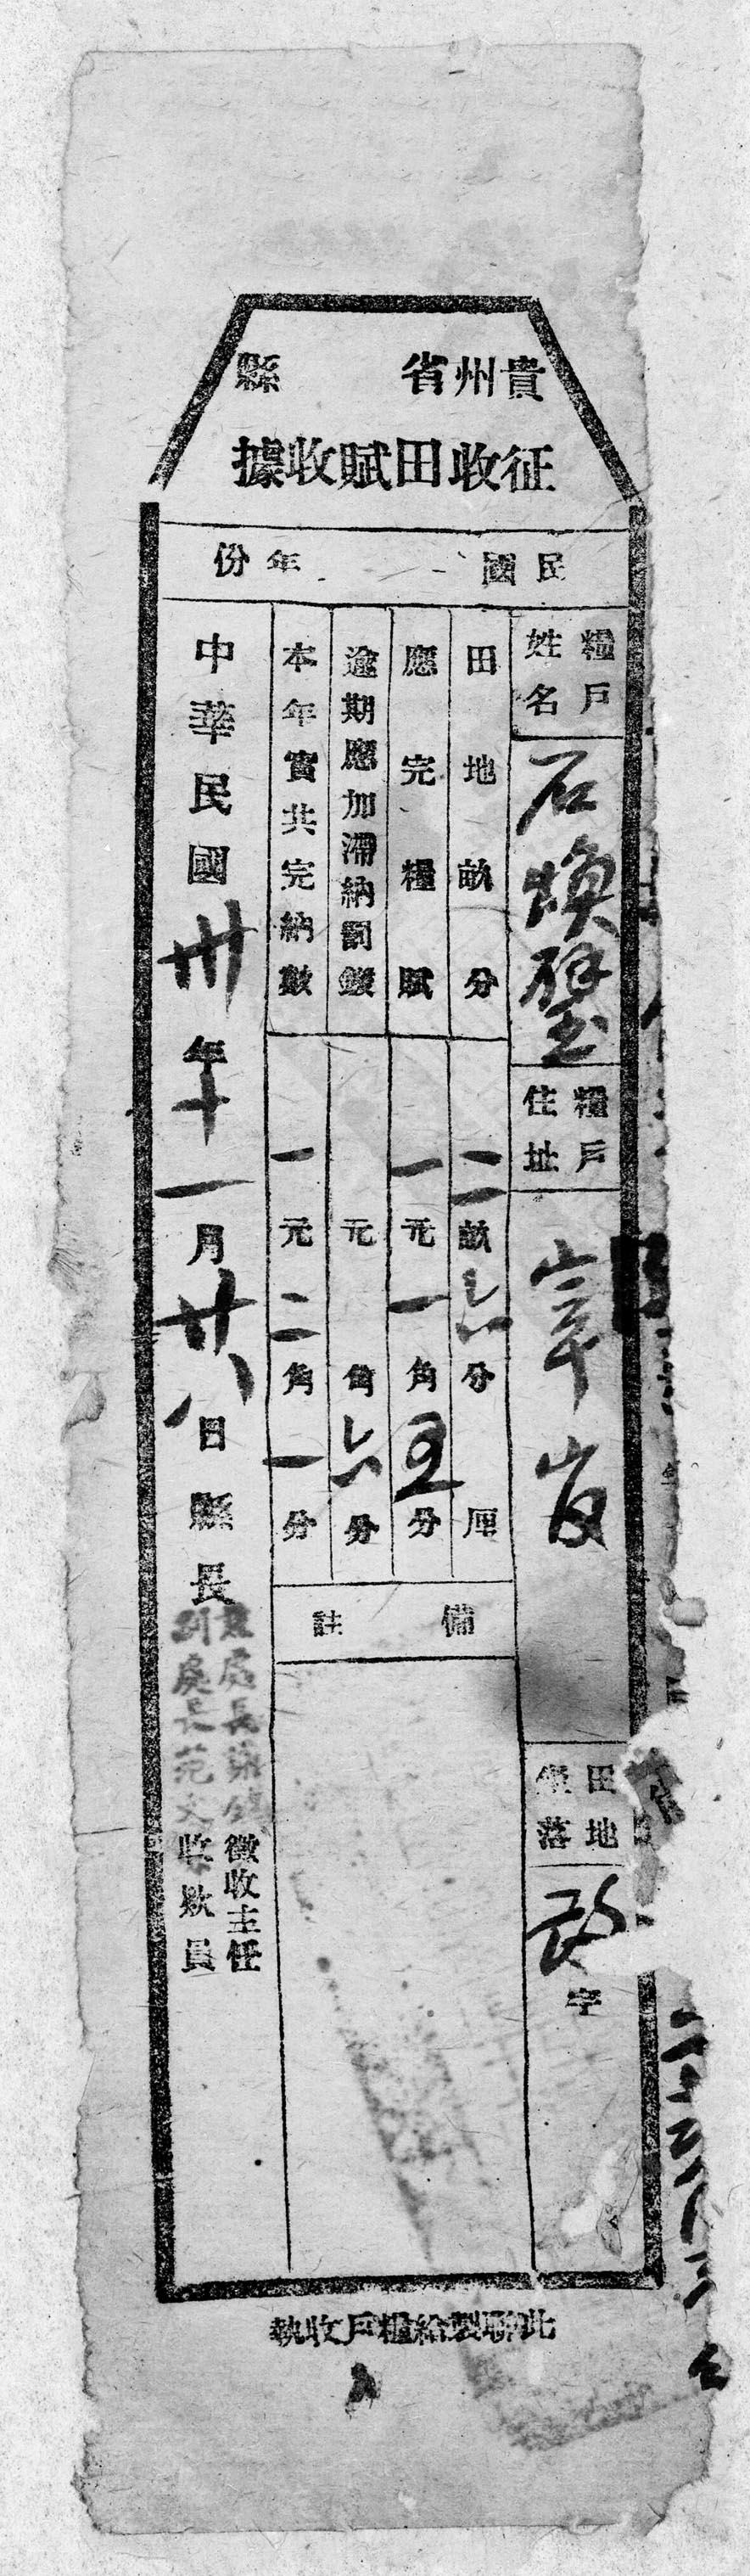 貴州省　　縣
征收田賦收據
民國　　年份
糧戶姓名
石煥璧
糧戶住址
田地坐落
字
田地畝分
二畝六分　厘
應完糧賦
一元一角五分
逾期應加滯納罰鍰
元　角六分
本年實共完納數
一元二角一分
備註
中華民國卅年十一月廿八日
縣長
處長
副處長范文
徵收主任
收款員
此聯製給糧戶收執